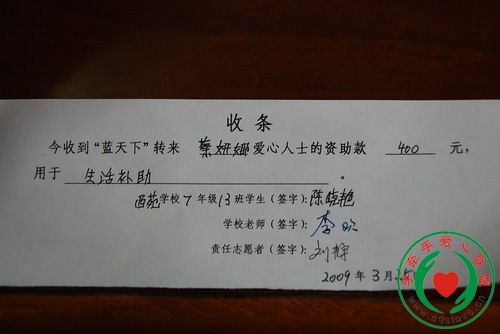 收条
今收到“蓝天下”转来 蔡妞妞 爱心人士的资助款 400 元,
用于 生活补助 。
西苑学校7年级13班学生(签字):陈晓艳
学校老师(签字):李
责任志愿者(签字):刘辉
2009年3月25
牵手爱心联盟